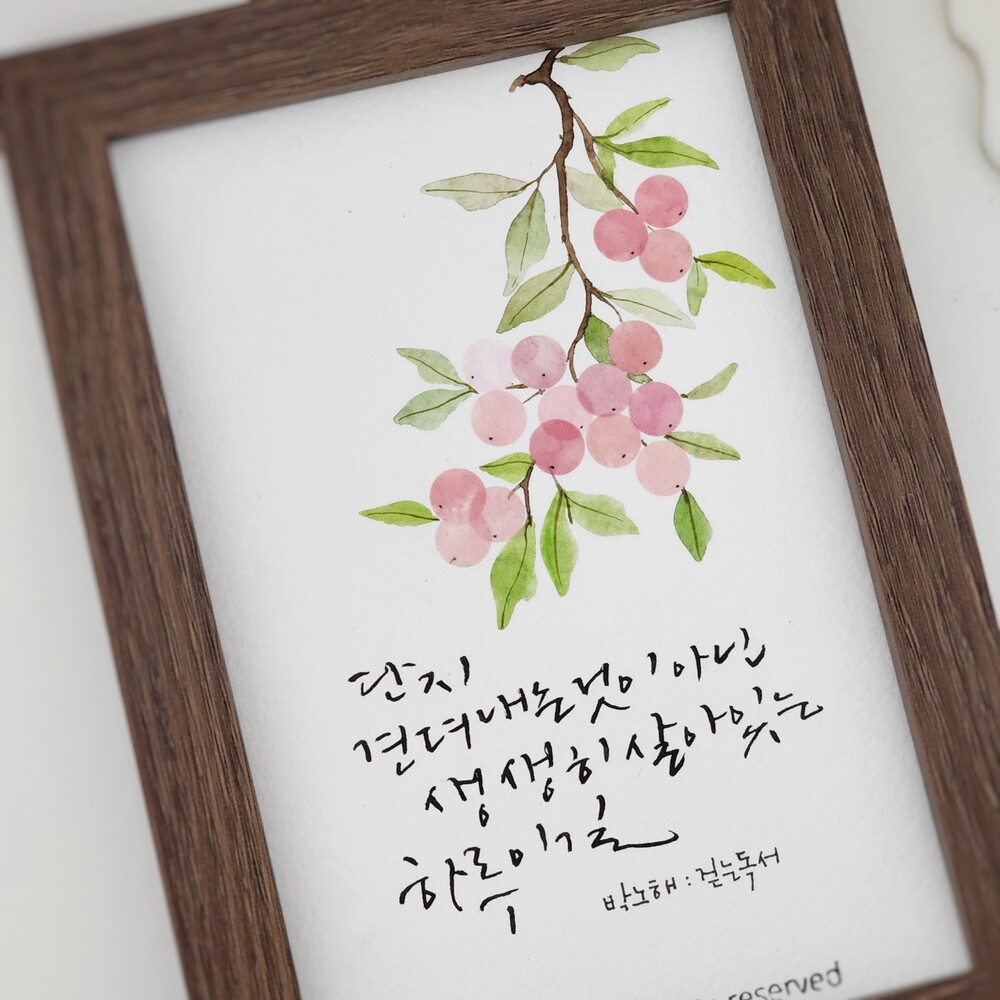 단지
견뎌내는것이아닌
생생히살아있는
하루이기를
박노해:걷는독서
reserved